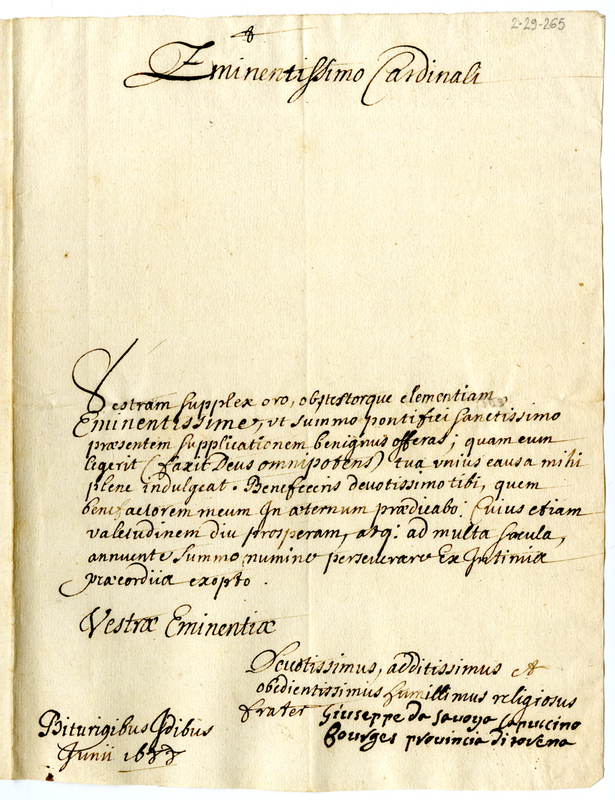 2-29-265
Eminentissimo Cardinali
Vestram supplex oro, obstestorque clementiam
Eminentissime, ut summo pontifici sanctissimo
præsentem supplicationem benignus offeras; quam cum
legerit (faxit Deus omnipotens) tua unius causa mihi
plene indulgeat. Benefeceris devotissimo tibi, quem
benefactorem meum In æternum prædicabo. Cuius etiam
valetudinem diu prosperam, atq: ad multa sæcula,
annuente summo numine perseverare Ex Intimis
præcordiis exopto.
Vestræ Eminentiæ
Devotissimus, addictissimus et
obedientissimus humillimus religiosus
frater Giuseppe da Savoya Capuccino
Bourges provincia di
Biturigibus Idibus
Junii